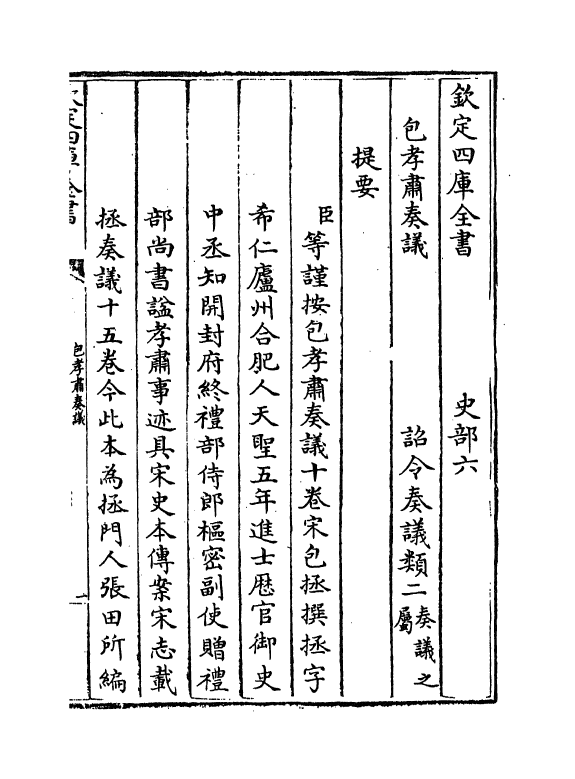 欽定四庫全書　史部六
包孝肅奏議　詔令奏議類二奏議之屬
提要
臣等謹按包孝肅奏議十卷宋包拯撰拯字
希仁廬州合肥人天聖五年進士歴官御史
中丞知開封府終禮部侍郎樞密副使贈禮
部尚書諡孝肅事迹具宋史本傳案宋志載
拯奏議十五卷今此本為拯門人張田所編
欽定四庫全書
包孝肅奏議
一